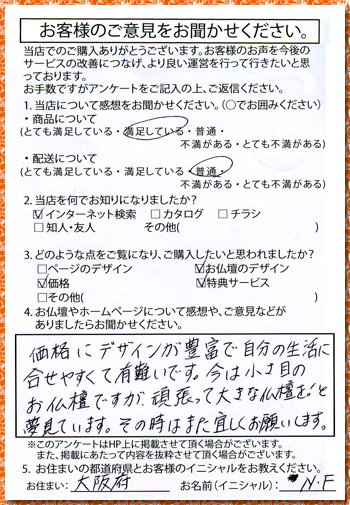 お客様のご意見をお聞かせください。
当店でのご購入ありがとうございます。お客様のお声を今後の
サービスの改善につなげ、より良い運営を行って行きたいと思
っております。
お手数ですがアンケートをご記入の上、ご返信ください。
1. 当店について感想をお聞かせください。(○でお囲みください)
・商品について
(とても満足している・満足している・普通・
不満がある・とても不満がある)
・配送について
(とても満足している・満足している・普通・
不満がある・とても不満がある)
2. 当店を何でお知りになりましたか?
☑インターネット検索 □カタログ □チラシ
□知人・友人 その他( )
3. どのような点をご覧になり、ご購入したいと思われましたか?
□ページのデザイン ☑お仏壇のデザイン
☑価格 ☑特典サービス
□その他( )
4. お仏壇やホームページについて感想や、ご意見などが
ありましたらお聞かせください。
価格にデザインが豊富で自分の生活に
合せやすくて有難いです。今は小さ目の
お仏壇ですが、頑張って大きな仏壇を!と
夢見ています。その時はまた宜しくお願いします。
※このアンケートはHP上に掲載させて頂く場合がございます。
また、掲載にあたって内容を抜粋させて頂く場合がございます。
5. お住まいの都道府県とお客様のイニシャルをお教えください。
お住まい: 大阪府 お名前(イニシャル): N.F